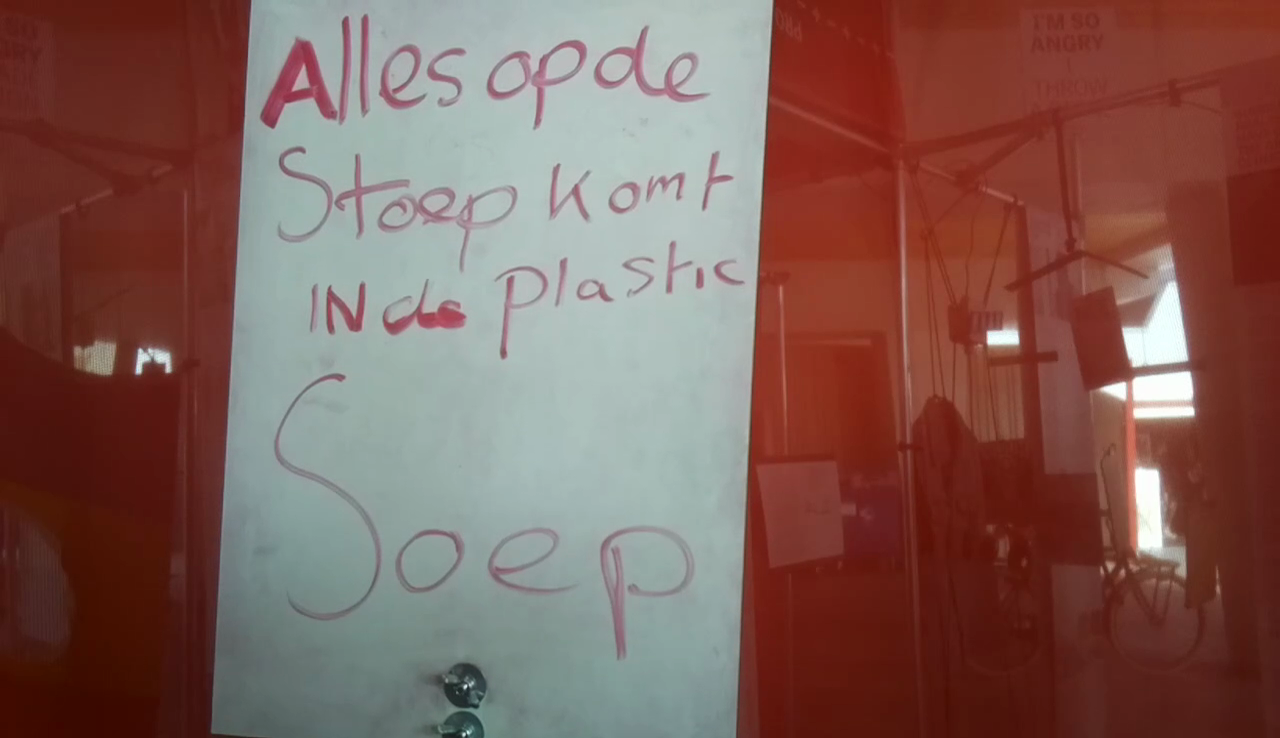 Alles op de
Stoep komt
IN de plastic
Soep
I'M SO
ANGRY
I
THROW